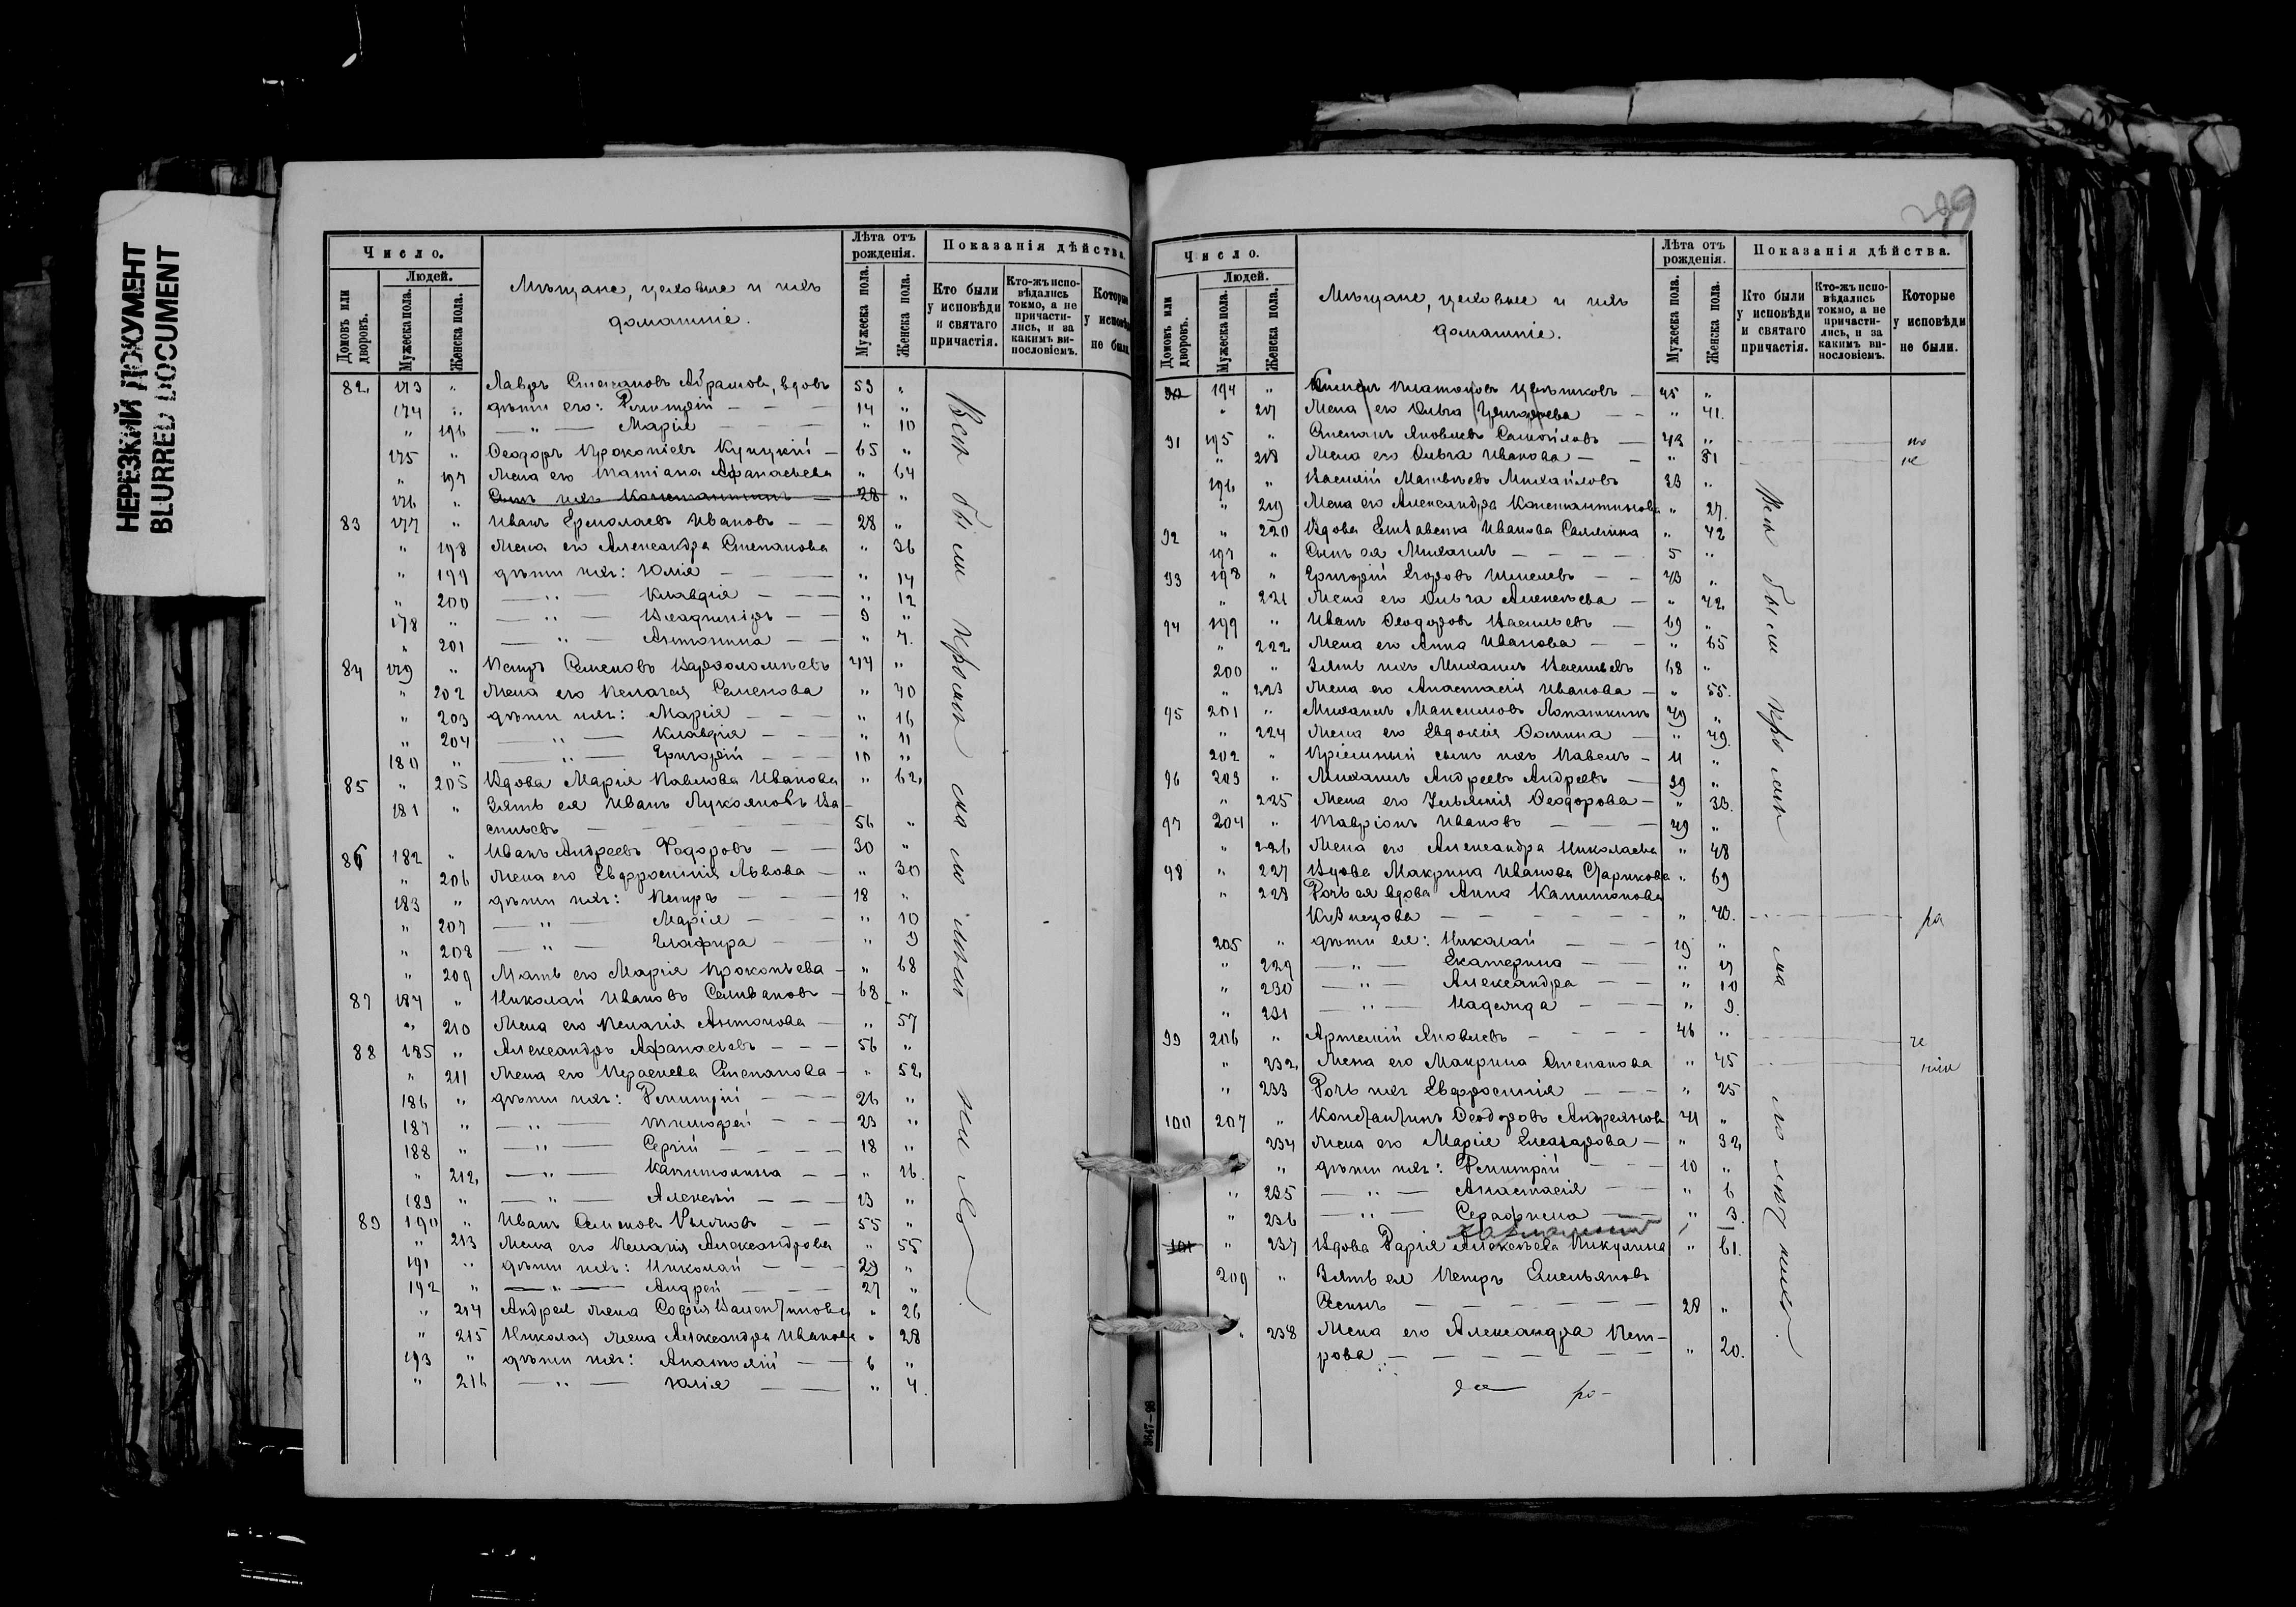 НЕРЕЗКИЙ ДОКУМЕНТ
BLURRED DOCUMENT
Число.
Людей.
Домовъ или дворовъ.
Мужеска пола.
Женска пола.
Мѣщане, цеховые и ихъ
домашніе.
Лѣта отъ рожденія.
Мужеска пола.
Женска пола.
Показанія дѣйства.
Кто были у исповѣди и святаго причастія.
Кто-жъ исповѣдались токмо, а не причастились, и за какимъ винословіемъ.
Которые у исповѣди не были.
82. 173 " Лавръ Степановъ Абрамовъ, вдовъ 53 "
174 " дѣти его: Димитрій 14 "
" 196 — " — Марія " 10
175 " Ѳеодоръ Прокопіевъ Купцкій 65 "
" 197 Жена его Татіана Афанасьева " 64
176 " Сынъ ихъ Константинъ 28 "
83 177 " Иванъ Ермолаевъ Ивановъ 28 "
" 198 Жена его Александра Степанова " 36
" 199 дѣти ихъ: Юлія " 14
" 200 — " — Клавдія " 12
178 " — " — Владиміръ 9 "
" 201 — " — Антонина " 7.
84 179 " Петръ Семеновъ Варѳоломѣевъ 44 "
" 202 Жена его Пелагея Семенова " 40
" 203 дѣти ихъ: Марія " 16
" 204 — " — Клавдія " 11
180 " — " — Григорій 10 "
85 " 205 Вдова Марія Павлова Иванова " 62,
181 " Зять ея Иванъ Лукояновъ Ва-
сильевъ 56 "
86 182 " Иванъ Андреевъ Федоровъ 30 "
" 206 Жена его Евфросинія Львова " 30
183 " дѣти ихъ: Петръ 18 "
" 207 — " — Марія " 10
" 208 — " — Глафира " 9
" 209 Мать его Марія Прокопьева " 68
87 184 " Николай Ивановъ Селивановъ 68 "
" 210 Жена его Пелагія Антонова " 57
88 185 " Александръ Афанасьевъ 56 "
" 211 Жена его Параскева Степанова " 52,
186 " дѣти ихъ: Димитрій 26 "
187 " — " — Тимофей 23 "
188 " — " — Сергій 18 "
" 212, — " — Капитолина " 16
189 " — " — Алексѣй 13 "
89 190 " Иванъ Семеновъ 55 "
" 213 Жена его Пелагія Александрова " 55
191 " дѣти ихъ: Николай 29 "
192 " — " — Андрей 27 "
" 214 Андрея жена Софія Валентинова " 26
" 215 Николая жена Александра Иванова " 28
193 " дѣти ихъ: Анатолій 6 "
" 216 — " — Юлія " 4.
Всѣ были кромѣ
299
Число.
Людей.
Домовъ или дворовъ.
Мужеска пола.
Женска пола.
Мѣщане, цеховые и ихъ
домашніе.
Лѣта отъ рожденія.
Мужеска пола.
Женска пола.
Показанія дѣйства.
Кто были у исповѣди и святаго причастія.
Кто-жъ исповѣдались токмо, а не причастились, и за какимъ винословіемъ.
Которые у исповѣди не были.
90 194 " Платоновъ Цвѣтковъ 45 "
" 217 Жена его Ольга " 41.
91 195 " Степанъ Яковлевъ Самойловъ 43 "
" 218 Жена его Ольга Иванова " 31 не
196 " Василій Матвѣевъ Михайловъ 33 "
" 219 Жена его Александра Константинова " 27.
92 " 220 Вдова Елизавета Иванова " 42
197 " Сынъ ея Михаилъ 5 "
93 198 " Григорій Егоровъ Шмелевъ 43 "
" 221 Жена его Ольга Алексѣева " 42,
94 199 " Иванъ Ѳеодоровъ Васильевъ 69 "
" 222 Жена его Анна Иванова " 65
200 " Зять ихъ Михаилъ Васильевъ 68 "
" 223 Жена его Анастасія Иванова " 55.
95 201 " Михаилъ Максимовъ Лопаткинъ 49 "
" 224 Жена его Евдокія Ѳомина " 49.
202 " Пріемный сынъ ихъ Павелъ 11 "
96 203 " Михаилъ Андреевъ Андреевъ 39 "
" 225 Жена его Ульянія Ѳеодорова " 33.
97 204 " Иларіонъ Ивановъ 49 "
" 226 Жена его Александра Николаева " 48
98 " 227 Вдова Макрина Иванова Старикова " 69
" 228 Дочь ея вдова Анна Капитонова
Кузнецова " 43.
205 " дѣти ея: Николай 19 "
" 229 — " — Екатерина " 17
" 230 — " — Александра " 10
" 231 — " — Надежда " 9.
99 206 " Артемій Яковлевъ 46 "
" 232, Жена его Макрина Степанова " 45
" 233 Дочь ихъ Евфросинія " 25
100 207 " Константинъ Ѳеодоровъ Андреяновъ 41 "
234 Жена его Марія Елеазарова " 32,
" дѣти ихъ: Димитрій 10 "
" 235 — " — Анастасія " 6
" 236 — " — Серафима " 3.
101 " 237 Вдова Дарія Алексѣева Никулина " 61.
209 " Зять ея Петръ Емельяновъ
Ѳоминъ 28 "
" 238 Жена его Александра Пет-
рова " 20.
Всѣ были кромѣ
3647—98